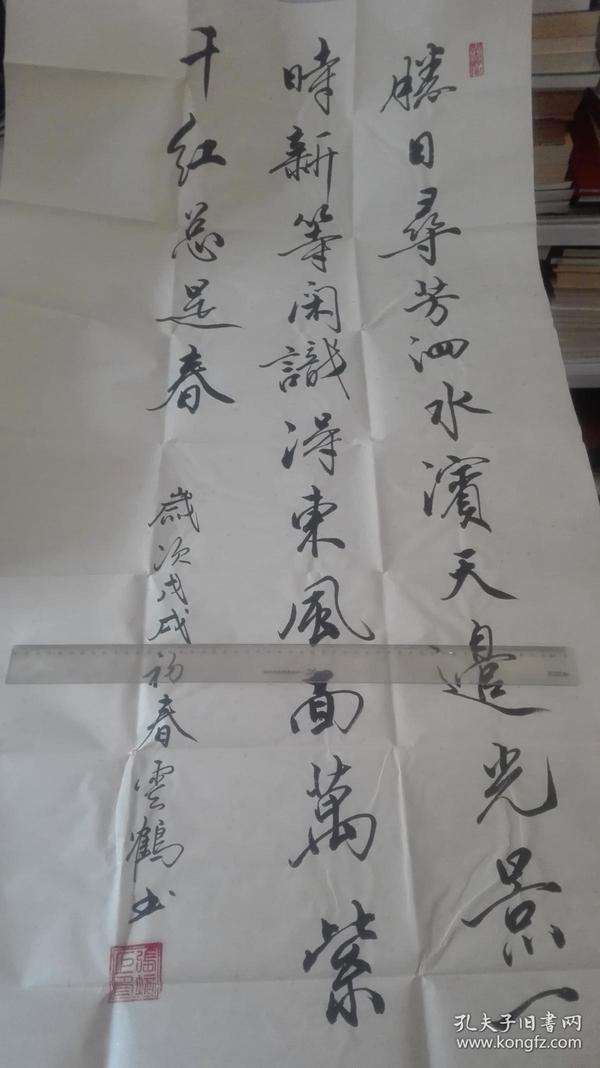 勝日尋芳泗水濱天邊光景一
時新等闲識得東風面萬紫
千红总是春
歲次戊戌初春雲鶴书
孔夫子旧書网
www.kongfz.com